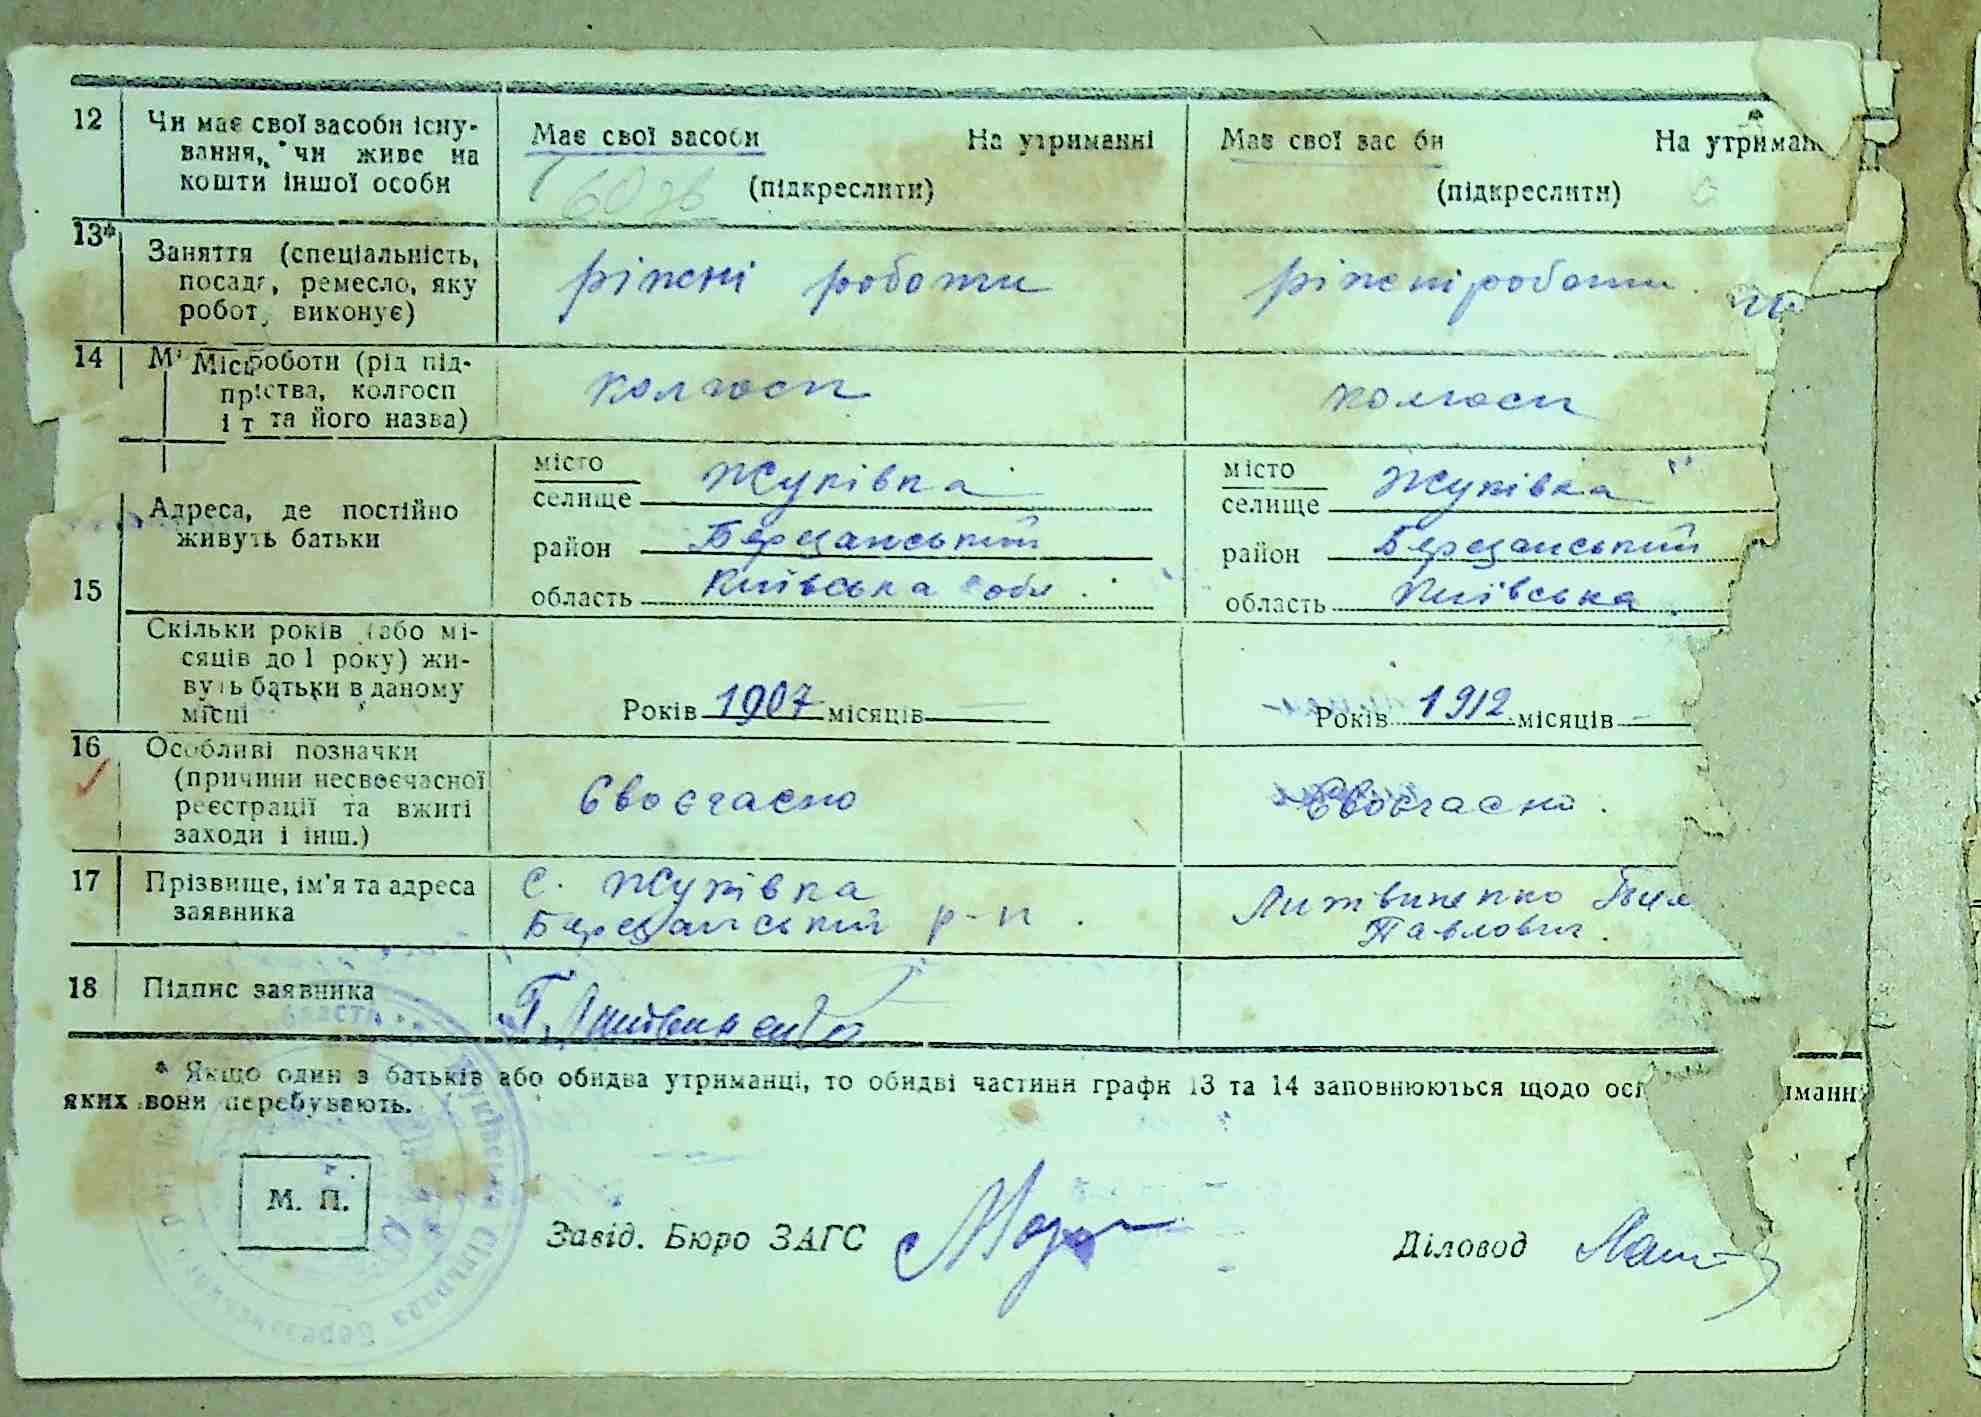 12 Чи має свої засоби існу-
вання, чи живе на
кошти іншої особи
Має свої засоби На утриманні
(підкреслити)
Має свої зас би На утриман
(підкреслити)
13* Заняття (спеціальність,
посада, ремесло, яку
робот, виконує)
ріжні роботи
ріжні роботи
14 М' Місц роботи (рід під-
пр ства, колгосп
і т та його назва)
колгосп
колгосп
15 Адреса, де постійно
живуть батьки
місто
селище Жуківка
район Березанський
область Київська обл.
місто
селище Жуківка
район Березанський
область Київська
Скільки років (або мі-
сяців до 1 року) жи-
вуть батьки в даному
місці
Років 1907 місяців
Років 1912 місяців
16 Особливі позначки
(причини несвоєчасної
реєстрації та вжиті
заходи і інш.)
Своєчасно
Своєчасно.
17 Прізвище, ім'я та адреса
заявника
С. Жуківка
Березанський р-н.
Литвиненко
Павлович.
18 Підпис заявника
Г. Литвиненко
* Якщо один з батьків або обидва утриманці, то обидві частини графи 13 та 14 заповнюються щодо ос иманн
яких вони перебувають.
М. П.
Завід. Бюро ЗАГС
Діловод
Жуківська Сільрада Березанськ